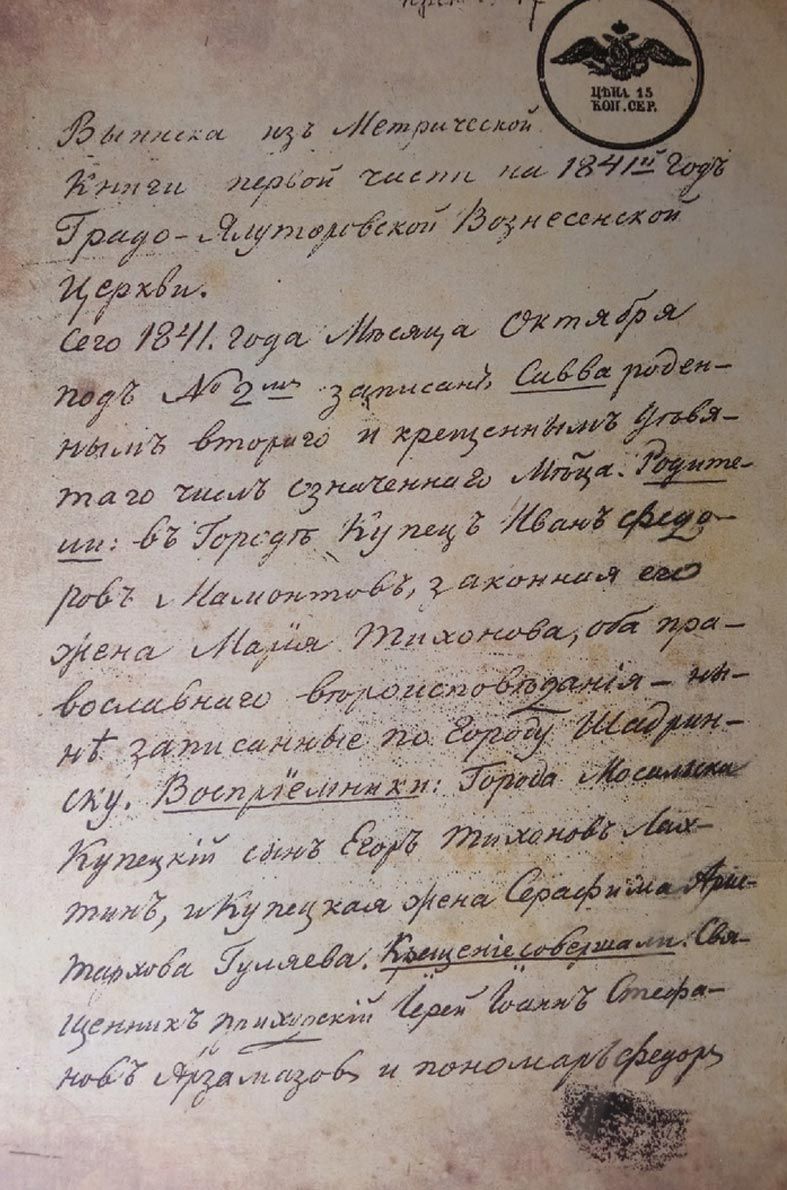 ЦѢНА 15
КОП. СЕР.
Выписка изъ Метрической
Книги первой части на 1841й Годъ
Градо-Ялуторовской Вознесенской
Церкви.
Сего 1841. года Мѣсяца Октября
подъ № 2мъ записанъ Савва роден-
нымъ втораго и крещеннымъ девя-
таго числъ означеннаго Мѣсца. Родите-
ли: въ Городѣ Купецъ Иванъ Федо-
ровъ Мамонтовъ, законная его
жена Марія Тихонова, оба пра-
вославнаго вѣроисповѣданія – ны-
нѣ записанные по Городу Шадрин-
ску. Воспріемники: Города Мосальска
Купецкій сынъ Егоръ Тихоновъ Лах-
тинъ, и Купецкая жена Серафима Арис-
тархова Гуляева. Крещеніе совершали: Свя-
щенникъ приходскій Іерей Іоаннъ Стефа-
новъ Арзамазовъ и пономарь Федоръ